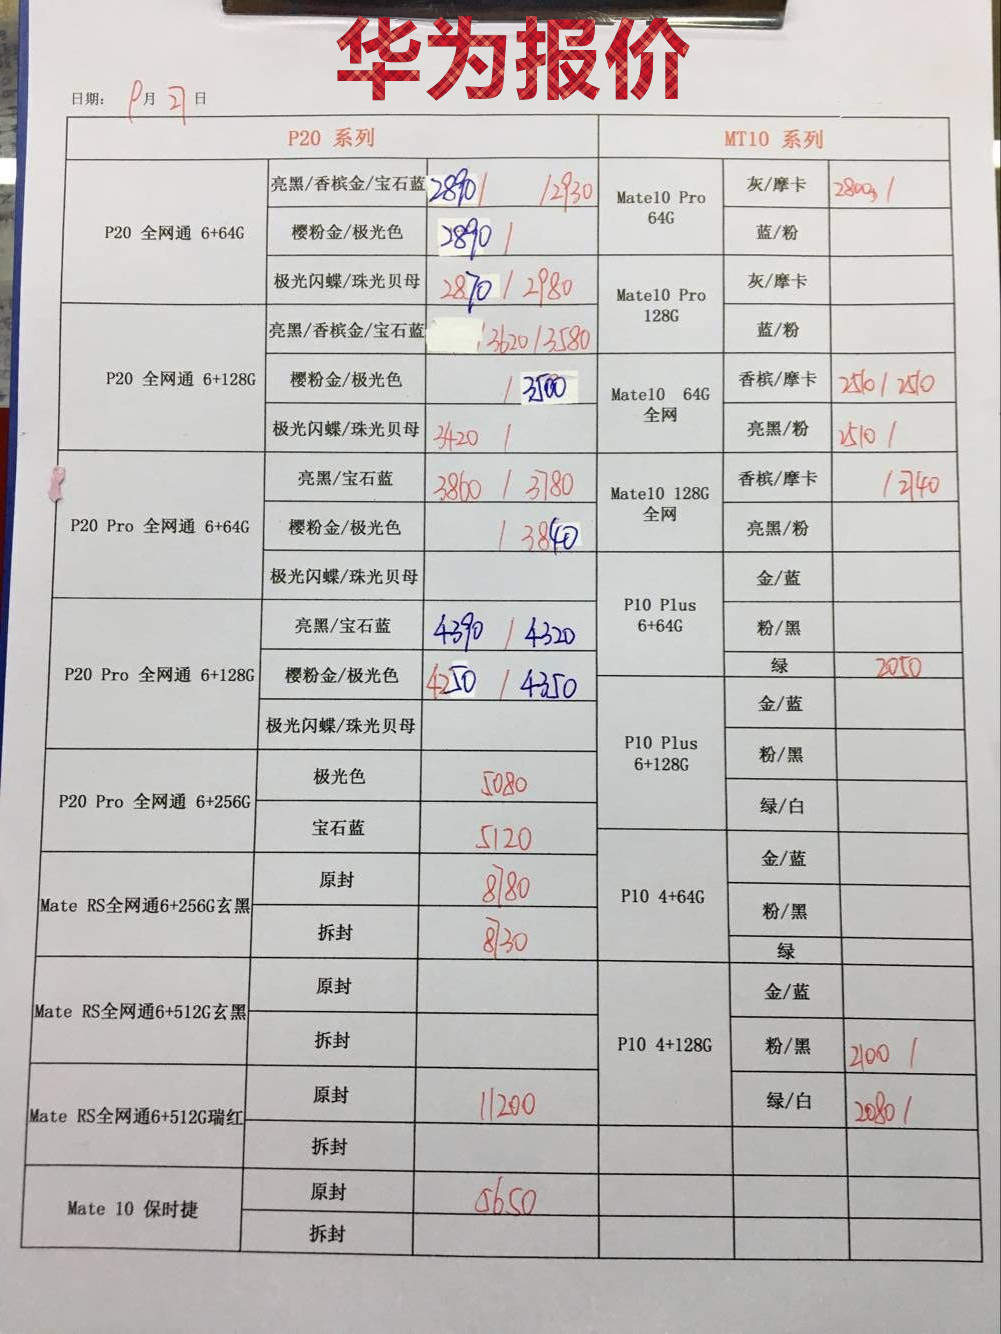 华为报价
日期： 9月27日
P20 系列
P20 全网通 6+64G
亮黑/香槟金/宝石蓝 2890/ /2930
樱粉金/极光色 2890/
极光闪蝶/珠光贝母 2870/2980
P20 全网通 6+128G
亮黑/香槟金/宝石蓝 /3620/3580
樱粉金/极光色 /3500
极光闪蝶/珠光贝母 3420/
P20 Pro 全网通 6+64G
亮黑/宝石蓝 3860/3780
樱粉金/极光色 /3840
极光闪蝶/珠光贝母
P20 Pro 全网通 6+128G
亮黑/宝石蓝 4390/4320
樱粉金/极光色 4250/4350
极光闪蝶/珠光贝母
P20 Pro 全网通 6+256G
极光色 5080
宝石蓝 5120
Mate RS全网通6+256G玄黑
原封 8780
拆封 8730
Mate RS全网通6+512G玄黑
原封
拆封
Mate RS全网通6+512G瑞红
原封 11200
拆封
Mate 10 保时捷
原封 5650
拆封
MT10 系列
Mate10 Pro
64G
灰/摩卡 2800/
蓝/粉
Mate10 Pro
128G
灰/摩卡
蓝/粉
Mate10 64G
全网
香槟/摩卡 2510/2510
亮黑/粉 2510/
Mate10 128G
全网
香槟/摩卡 /2740
亮黑/粉
P10 Plus
6+64G
金/蓝
粉/黑
绿 2050
P10 Plus
6+128G
金/蓝
粉/黑
绿/白
P10 4+64G
金/蓝
粉/黑
绿
P10 4+128G
金/蓝
粉/黑 2100/
绿/白 2080/